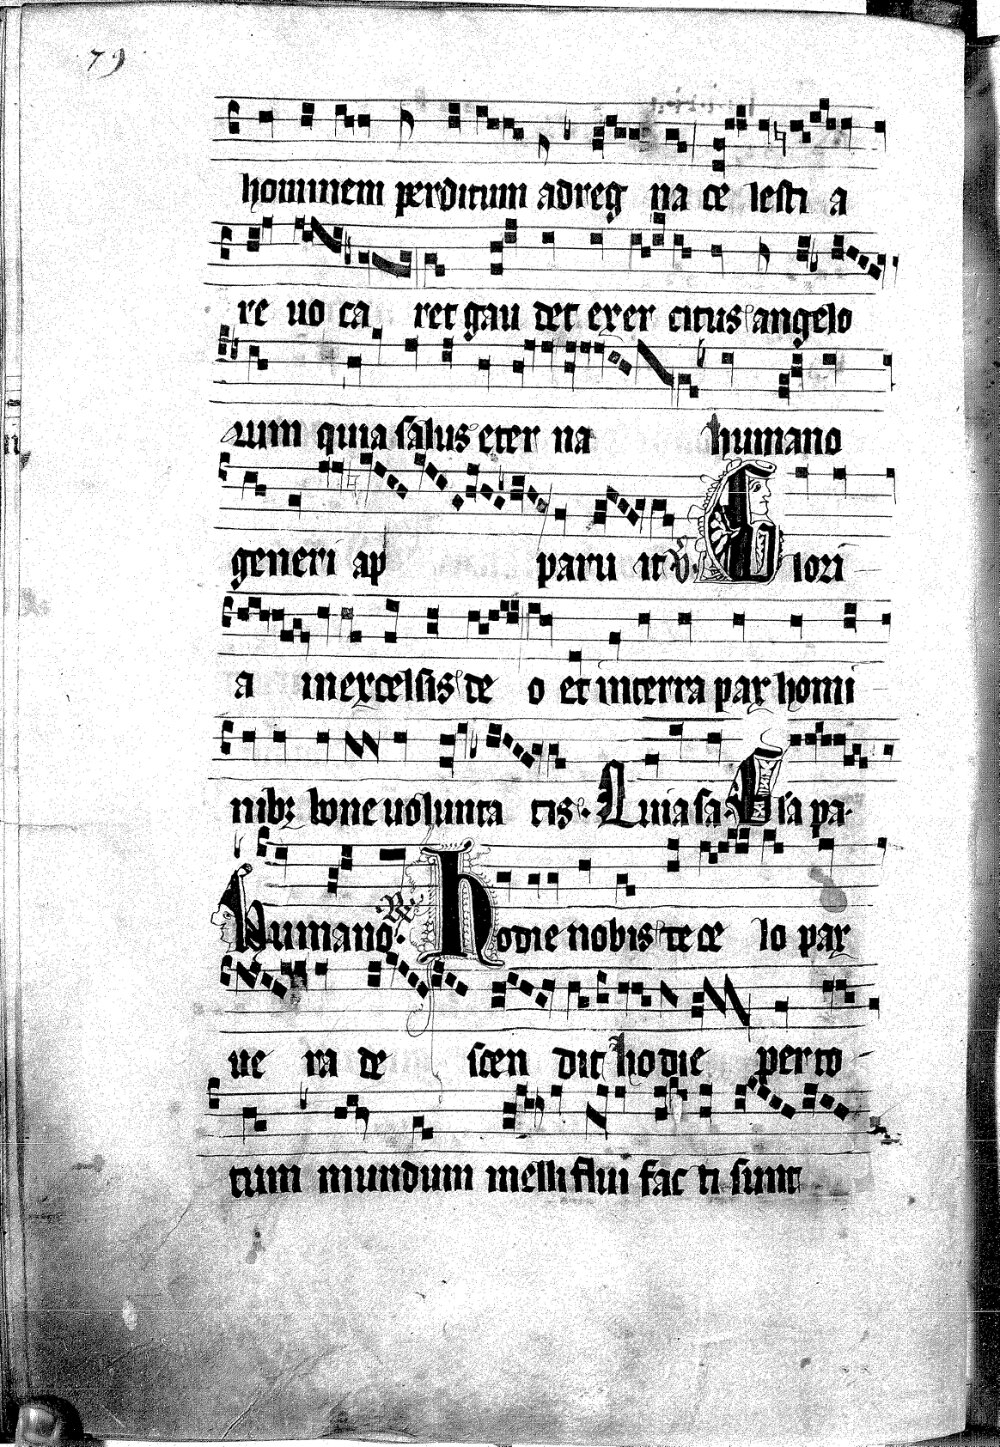 79
hominem perditum adreg na ce lesti a
re uo ca ret gau det exer citus angelo
rum quia salus eter na humano
generi ap paru it v. Glori
a inexcelsis de o et interra pax homi
nibz bone uolunta tis. Quia sa. G ia pa.
humano. R. hodie nobis de ce lo pax
ue ra de scen dit hodie per to
tum mundum melliflui fac ti sunt